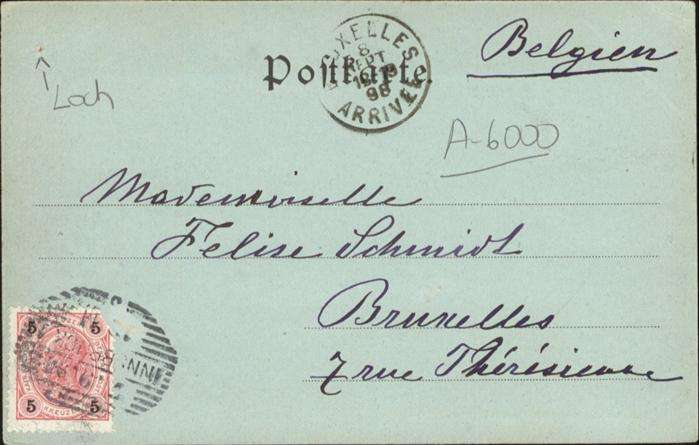 Belgien
Postkarte.
BRUXELLES
8
SEPT
98
ARRIVÉE
Loch
A-6000
Mademoiselle
Felise Schmidt
Bruxelles
7 rue Thérésienne
5 5
5 KREUZER 5
INN